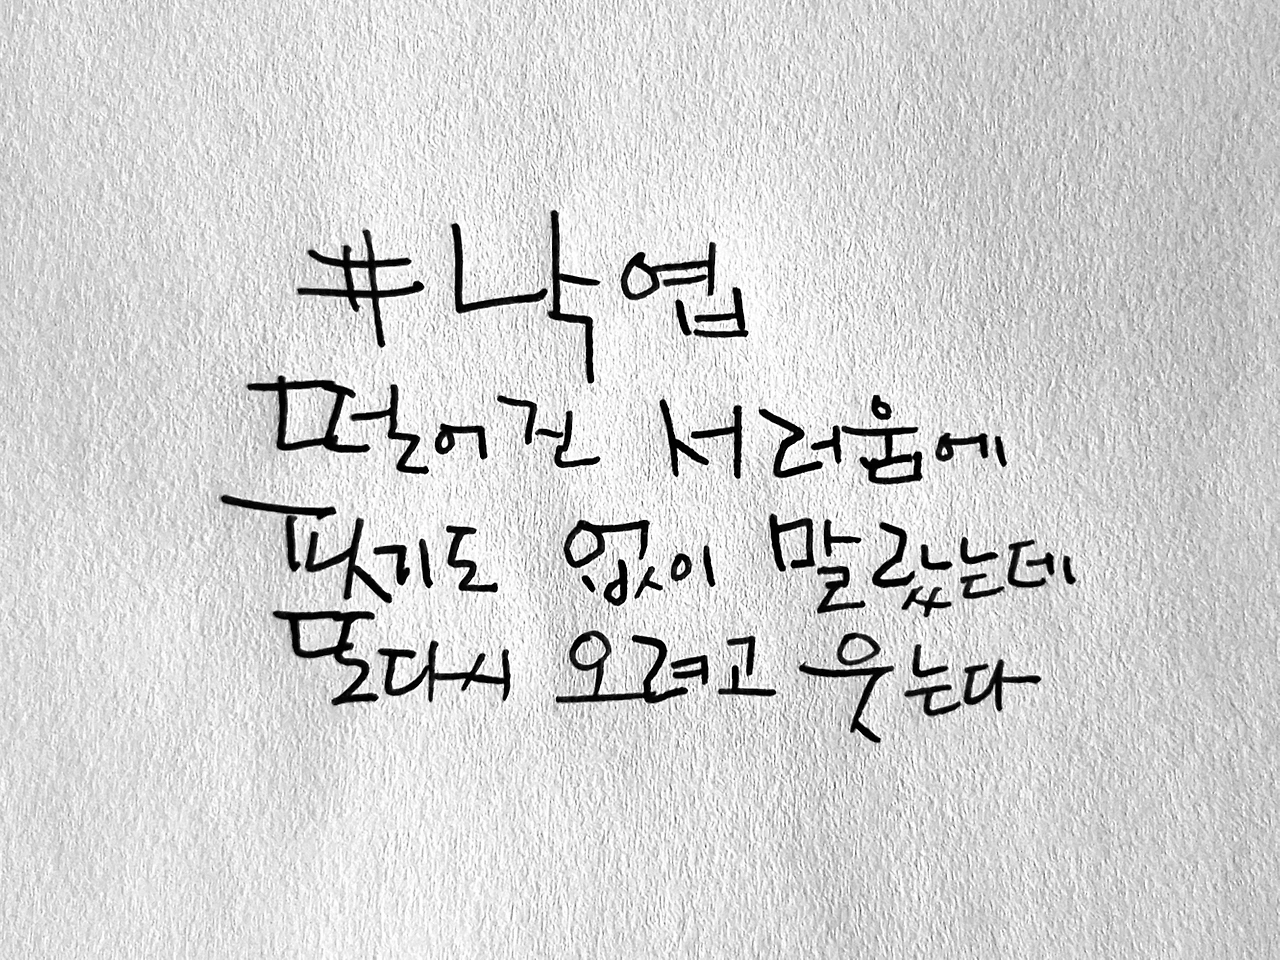 #낙엽
떨어진 서러움에
핏기도 없이 말랐는데
또다시 오려고 웃는다